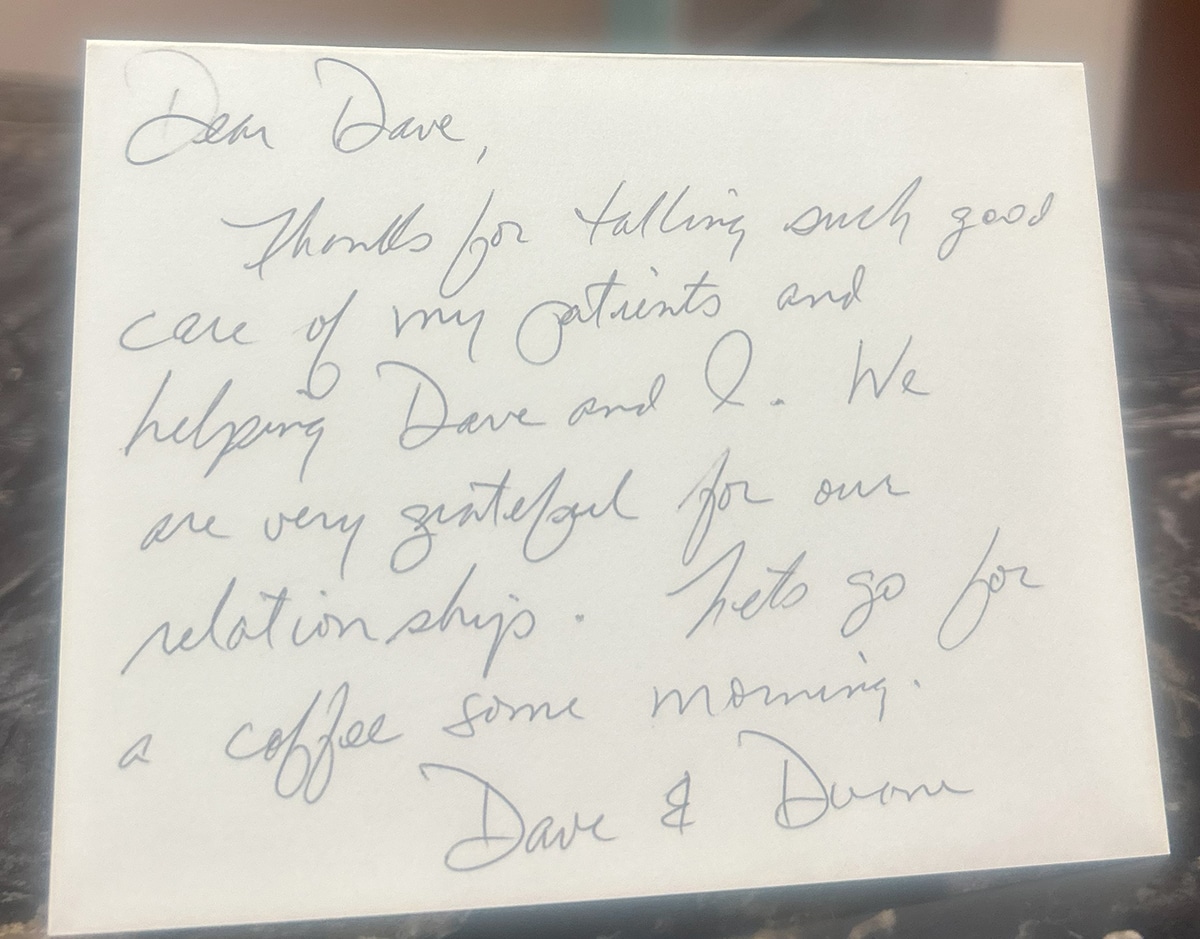 Dear Dave,
Thanks for taking such good
care of my patients and
helping Dave and I. We
are very grateful for our
relationships. Lets go for
a coffee some morning.
Dave & Duane